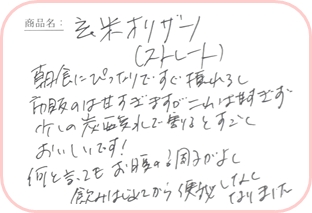 商品名： 玄米オリザーノ
(ストレート)
朝食にぴったりですぐ摂れるし
市販のは甘すぎますがこれは甘すぎず
少しの炭酸水で割るとすごく
おいしいです！
何と言ってもお腹の調子がよく
飲みはじめてから便秘しなく
なりました